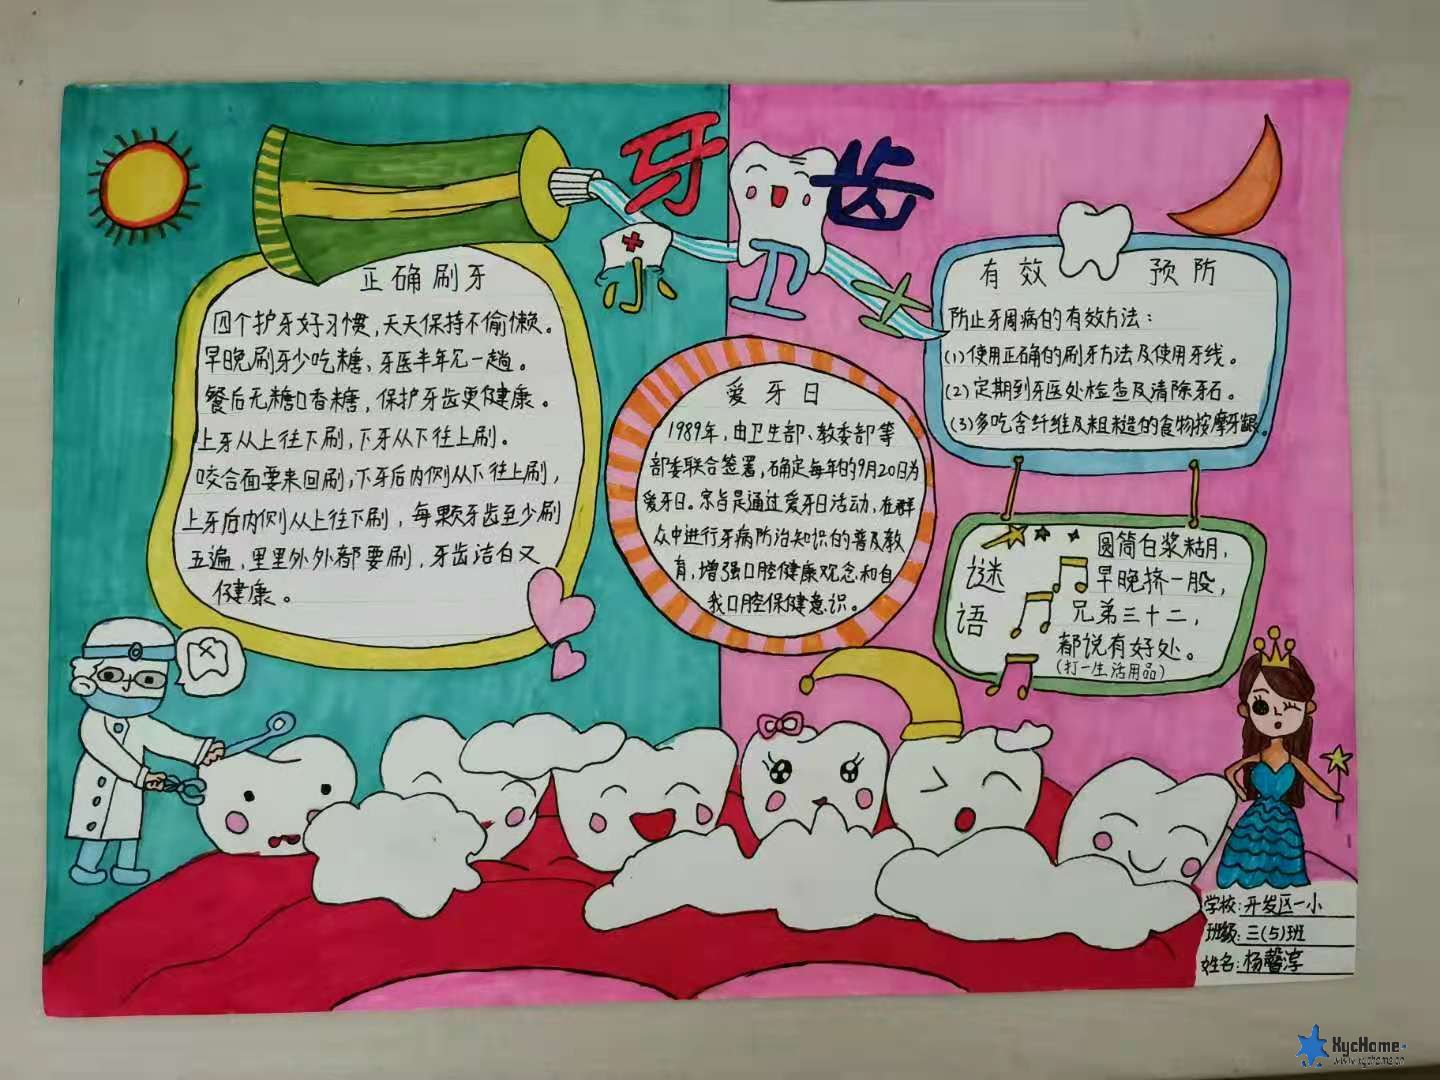 牙齿
小卫士
正确刷牙
四个护牙好习惯,天天保持不偷懒。
早晚刷牙少吃糖、牙医半年见一趟。
餐后无糖口香糖,保护牙齿更健康。
上牙从上往下刷,下牙从下往上刷。
咬合面要来回刷,下牙后内侧从下往上刷,
上牙后内侧从上往下刷,每颗牙齿至少刷
五遍,里里外外都要刷,牙齿洁白又
健康。
爱牙日
1989年,由卫生部、教委部等
部委联合签署,确定每年的9月20日为
爱牙日。宗旨是通过爱牙日活动,在群
众中进行牙病防治知识的普及教
育,增强口腔健康观念和自
我口腔保健意识。
有效 预防
防止牙周病的有效方法:
(1)使用正确的刷牙方法及使用牙线。
(2)定期到牙医处检查及清除牙石。
(3)多吃含纤维及粗糙的食物按摩牙龈。
谜语
圆筒白浆粘月,
早晚挤一股,
兄弟三十二,
都说有好处。
(打一生活用品)
学校:开发区一小
班级:三(5)班
姓名:杨馨淳
KycHome
www.kychome.cn